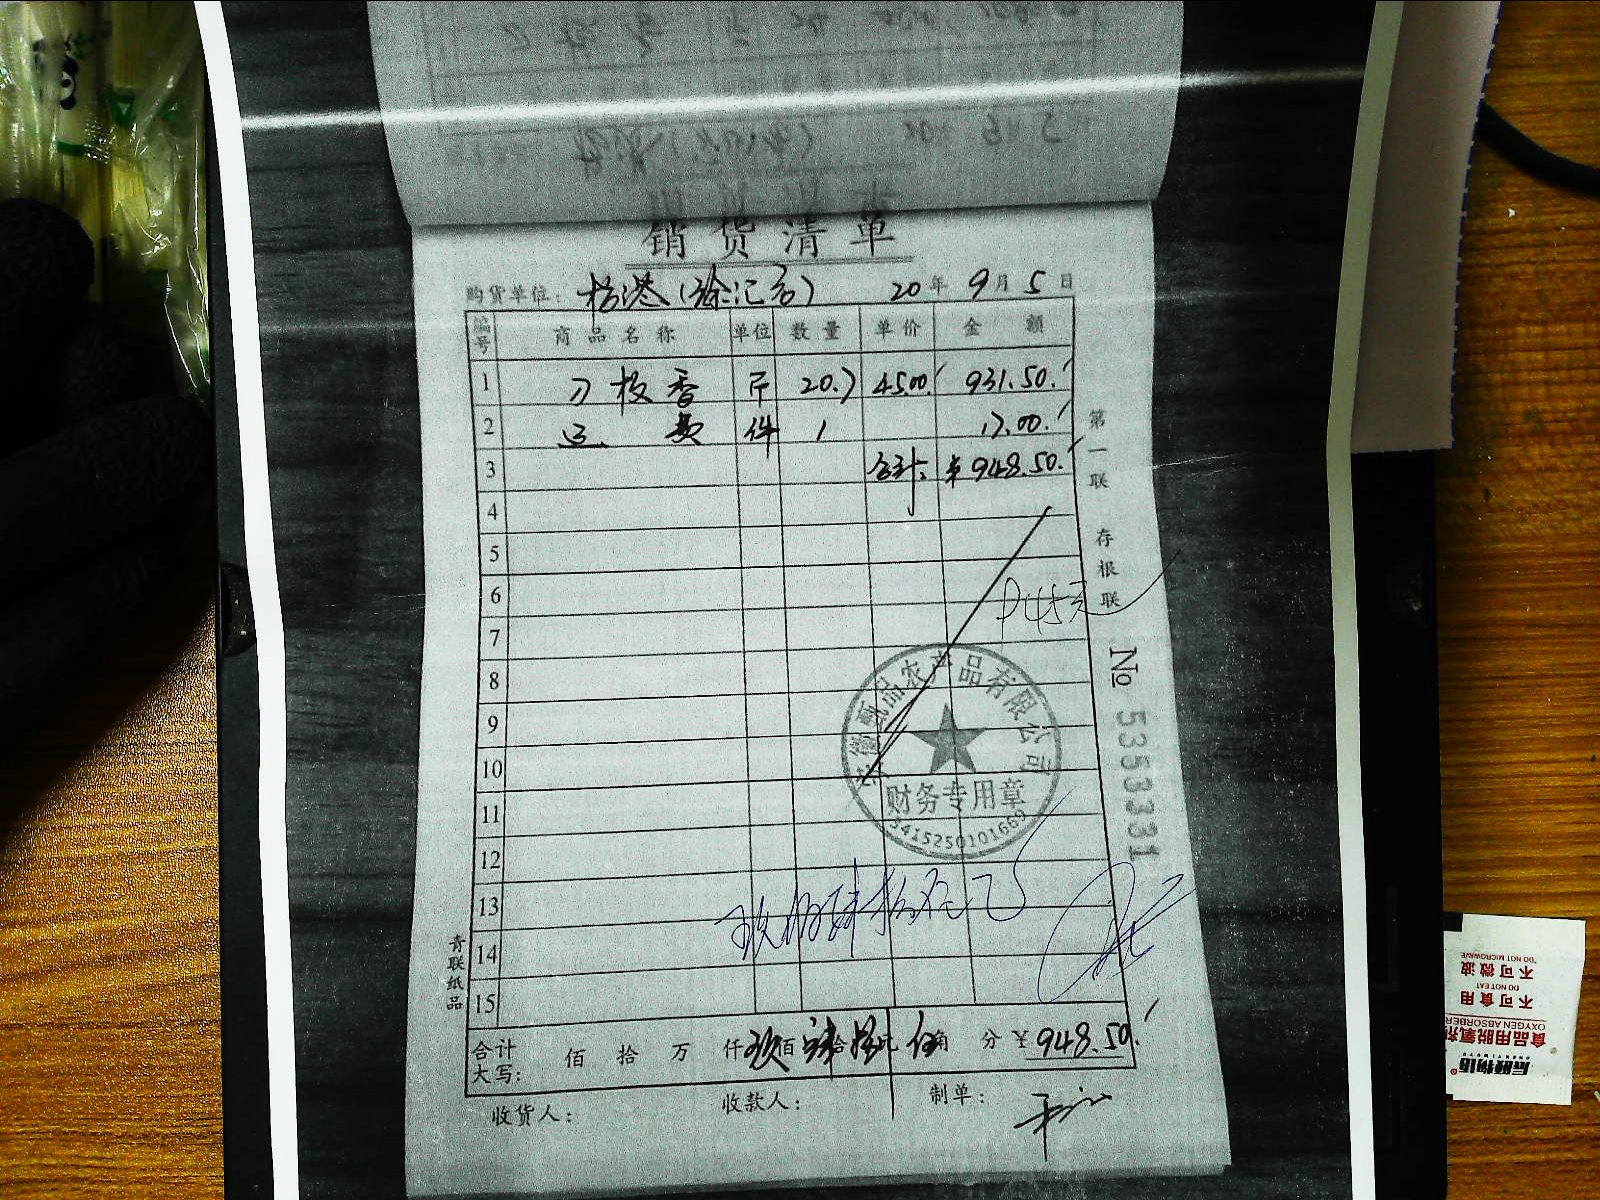 销货清单
购货单位: 杨港(徐汇店) 20年9月5日
编号 商品名称 单位 数量 单价 金额
1 刀板香 斤 20.7 45.00 931.50
2 运费 件 1 17.00
3 合计: ¥948.50
4
5
6
7
8
9
10
11
12
13
14
15
第一联 存根联
№ 5353331
安徽甄品农产品有限公司
财务专用章
3415250101669
青联纸品
合计大写: 佰 拾 万 仟 玖佰 肆拾 元 伍角 分 ¥948.50
收货人: 收款人: 制单:
不可微波
"DO NOT MICROWAVE
不可食用
DO NOT EAT
OXYGEN ABSORBER
食品用脱氧剂